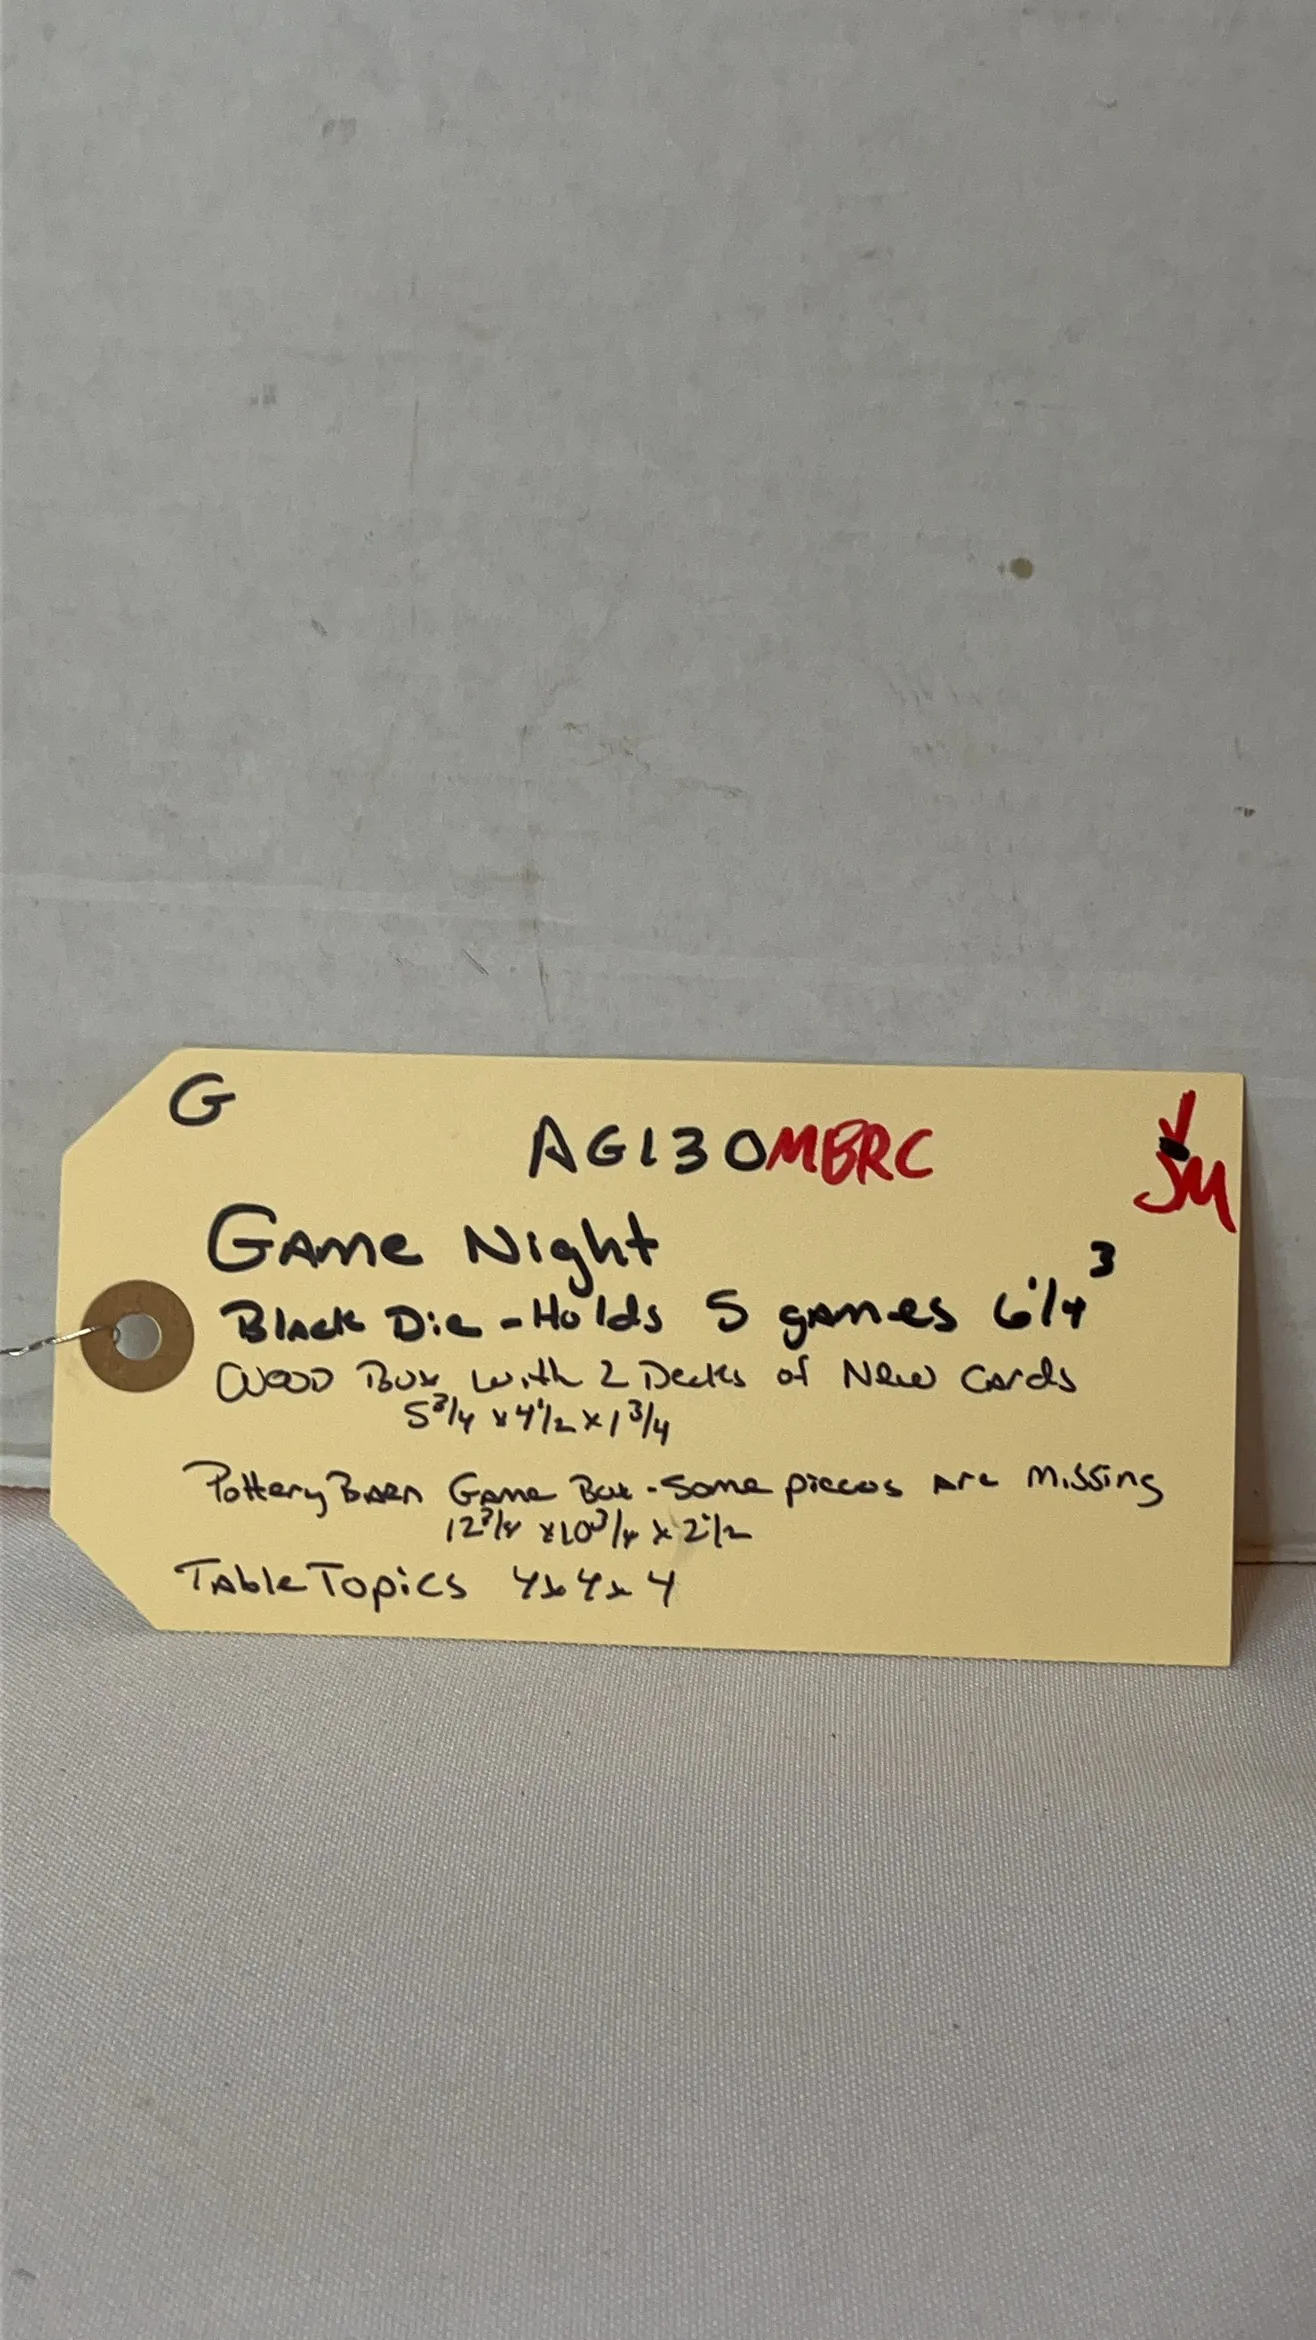 G
AG130MBRC
JM
Game Night
Black Die - Holds 5 games 6 1/4 ³
Wood Box with 2 Decks of New Cards
5 3/4 x 4 1/2 x 1 3/4
Pottery Barn Game Box - Some pieces are missing
12 3/4 x 10 3/4 x 2 1/2
Table Topics 4x4x4